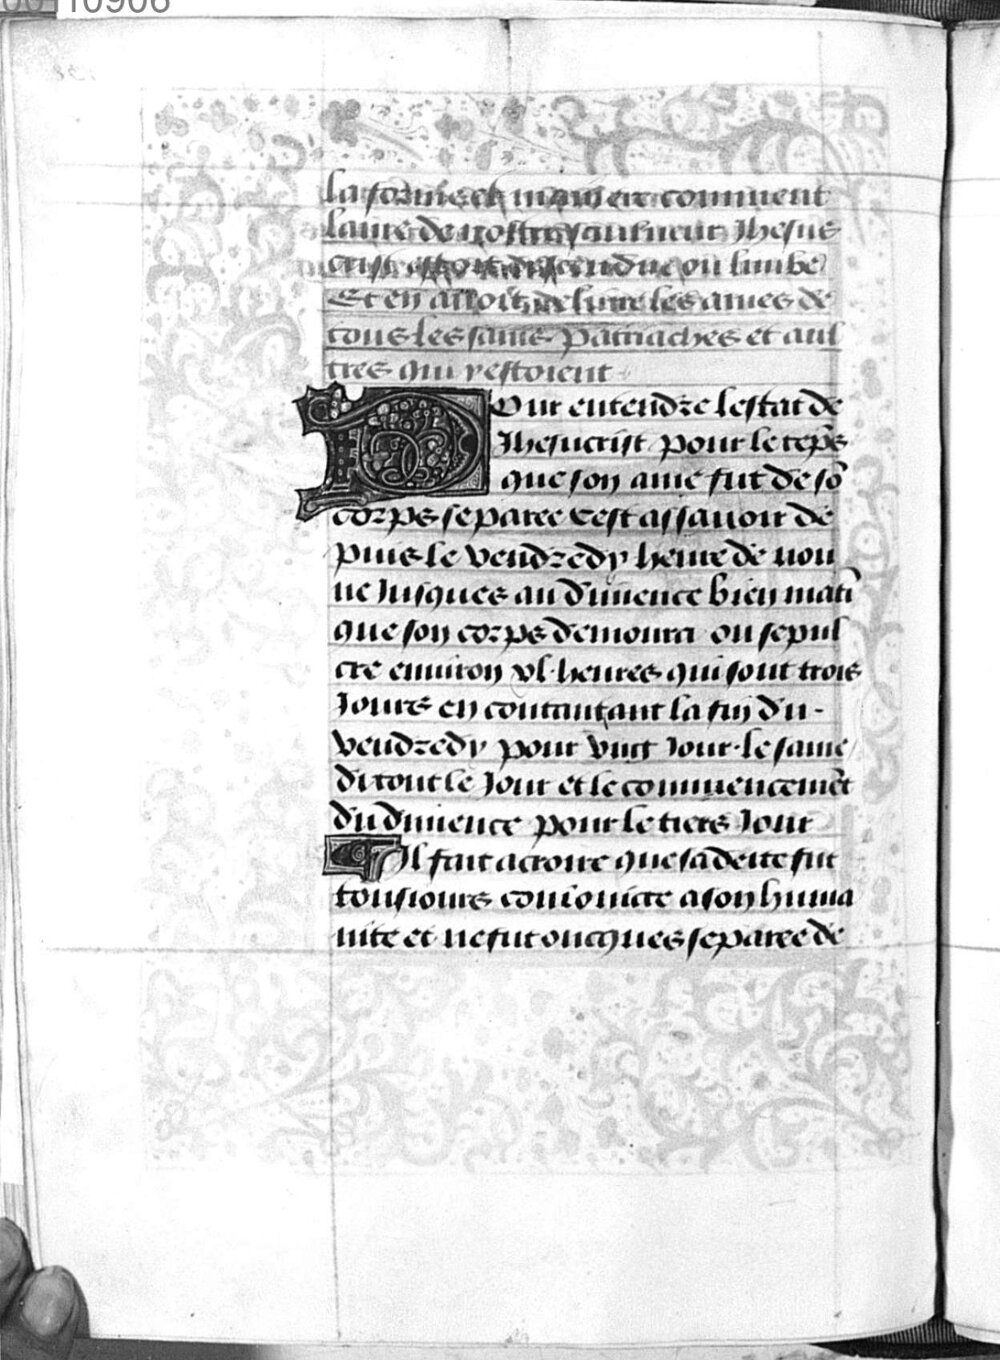 10906
la forme et maniere comment
lame de nostre saulueur Jhesus
crist estoit descendue ou limbe
Et en alloit deliure les ames de
tous les sains patriaches et aul
tres qui y estoient
Pour entendre lestat de
Jhesucrist pour le tēps
que son ame fut de sō
corps separee Cest assauoir de
puis le vendredy heure de non
ne Jusques au dimence bien matī
que son corps demoura ou sepul
cre enuiron xl heures qui sont trois
Jours en contant la fin du
vendredy pour vng Jour le same
di tout le Jour et le commencemēt
du dimence pour le tiers Jour
Il fait acroire que sa deite fut
tousiours conioincte a son huma
nite et ne fut oncques separee de